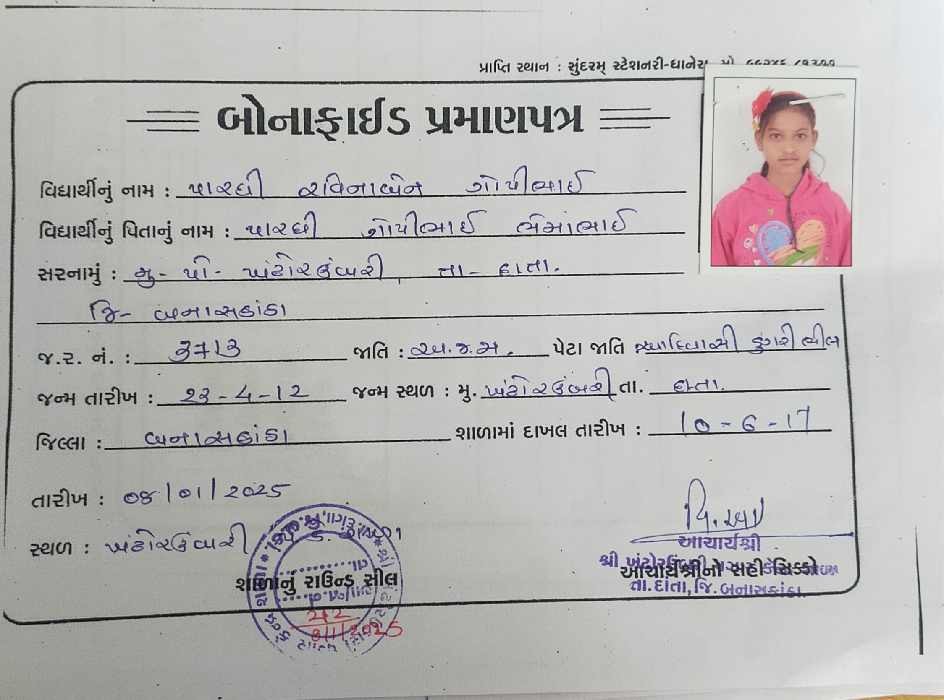 પ્રાપ્તિ સ્થાન : સુંદરમ્ સ્ટેશનરી-ધાનેરા મો.
બોનાફાઈડ પ્રમાણપત્ર
વિદ્યાર્થીનું નામ : પારઘી રવિનાબેન ગોપીભાઈ
વિદ્યાર્થીનું પિતાનું નામ : પારઘી ગોપીભાઈ
સરનામું : મુ- પો- ખંઢોરઉંબરી, તા- દાતા.
જિ- બનાસકાંઠા
જ.ર. નં. : 3713 જાતિ : અ.જ.જ. પેટા જાતિ આદિવાસી ડુંગરી ભીલ
જન્મ તારીખ : 23-4-12 જન્મ સ્થળ : મુ. ખંઢોરઉંબરી તા. દાતા.
જિલ્લા : બનાસકાંઠા શાળામાં દાખલ તારીખ : 10-6-17
તારીખ : 08/01/2025
સ્થળ : ખંઢોરઉંબરી
શાળાનું રાઉન્ડ સીલ
212
8/1/2025
આચાર્યશ્રી
આચાર્યશ્રીનો સહી સિક્કો
તા.દાંતા, જિ.બનાસકાંઠા.